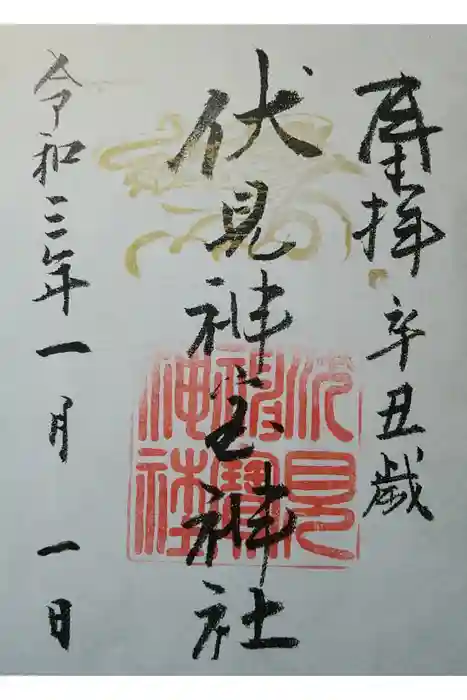 奉拝 辛丑歳
伏見神宝神社
伏見
神寶
神社
令和三年一月一日